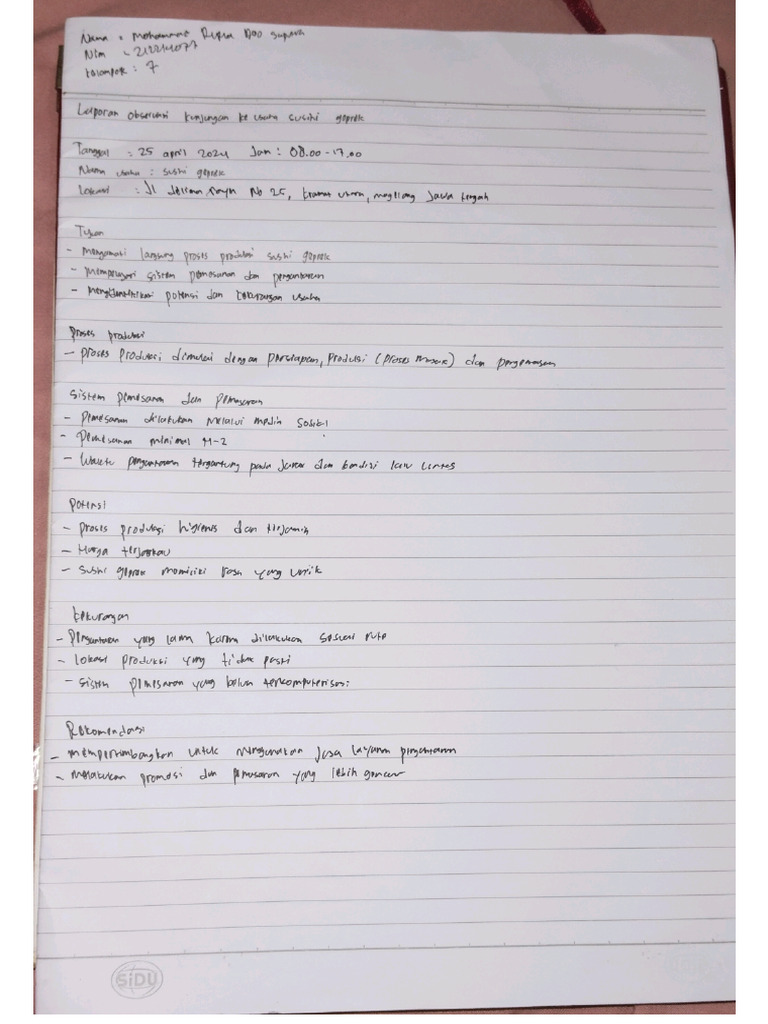 Nama : Mohammad
Nim : 
Kelompok : 7
Laporan observasi kunjungan ke usaha sushi geprek
Tanggal : 25 april 2024 Jam : 08.00 - 17.00
Nama usaha : sushi geprek
Lokasi : Jl No 25, kramat utara, magelang Jawa tengah
Tujuan
- Mengamati langsung proses produksi sushi geprek
- Mempelajari sistem pemesanan dan pengantaran
- Mengidentifikasi potensi dan kekurangan usaha
Proses produksi
- Proses Produksi dimulai dengan persiapan, Produksi (Proses Masak) dan pengemasan
Sistem pemesanan dan pemasaran
- Pemesanan dilakukan melalui media sosial
- Pemesanan minimal H-2
- Waktu pengantaran tergantung pada Jarak dan kondisi lalu lintas
Potensi
- Proses produksi higienis dan terjamin
- Harga terjangkau
- Sushi geprek memiliki rasa yang unik
Kekurangan
- Pengantaran yang lama karna dilakukan sesuai rute
- Lokasi produksi yang tidak pasti
- Sistem pemesanan yang belum terkomputerisasi
Rekomendasi
- mempertimbangkan untuk menggunakan Jasa layanan pengantaran
- melakukan promosi dan pemasaran yang lebih gencar
SiDU